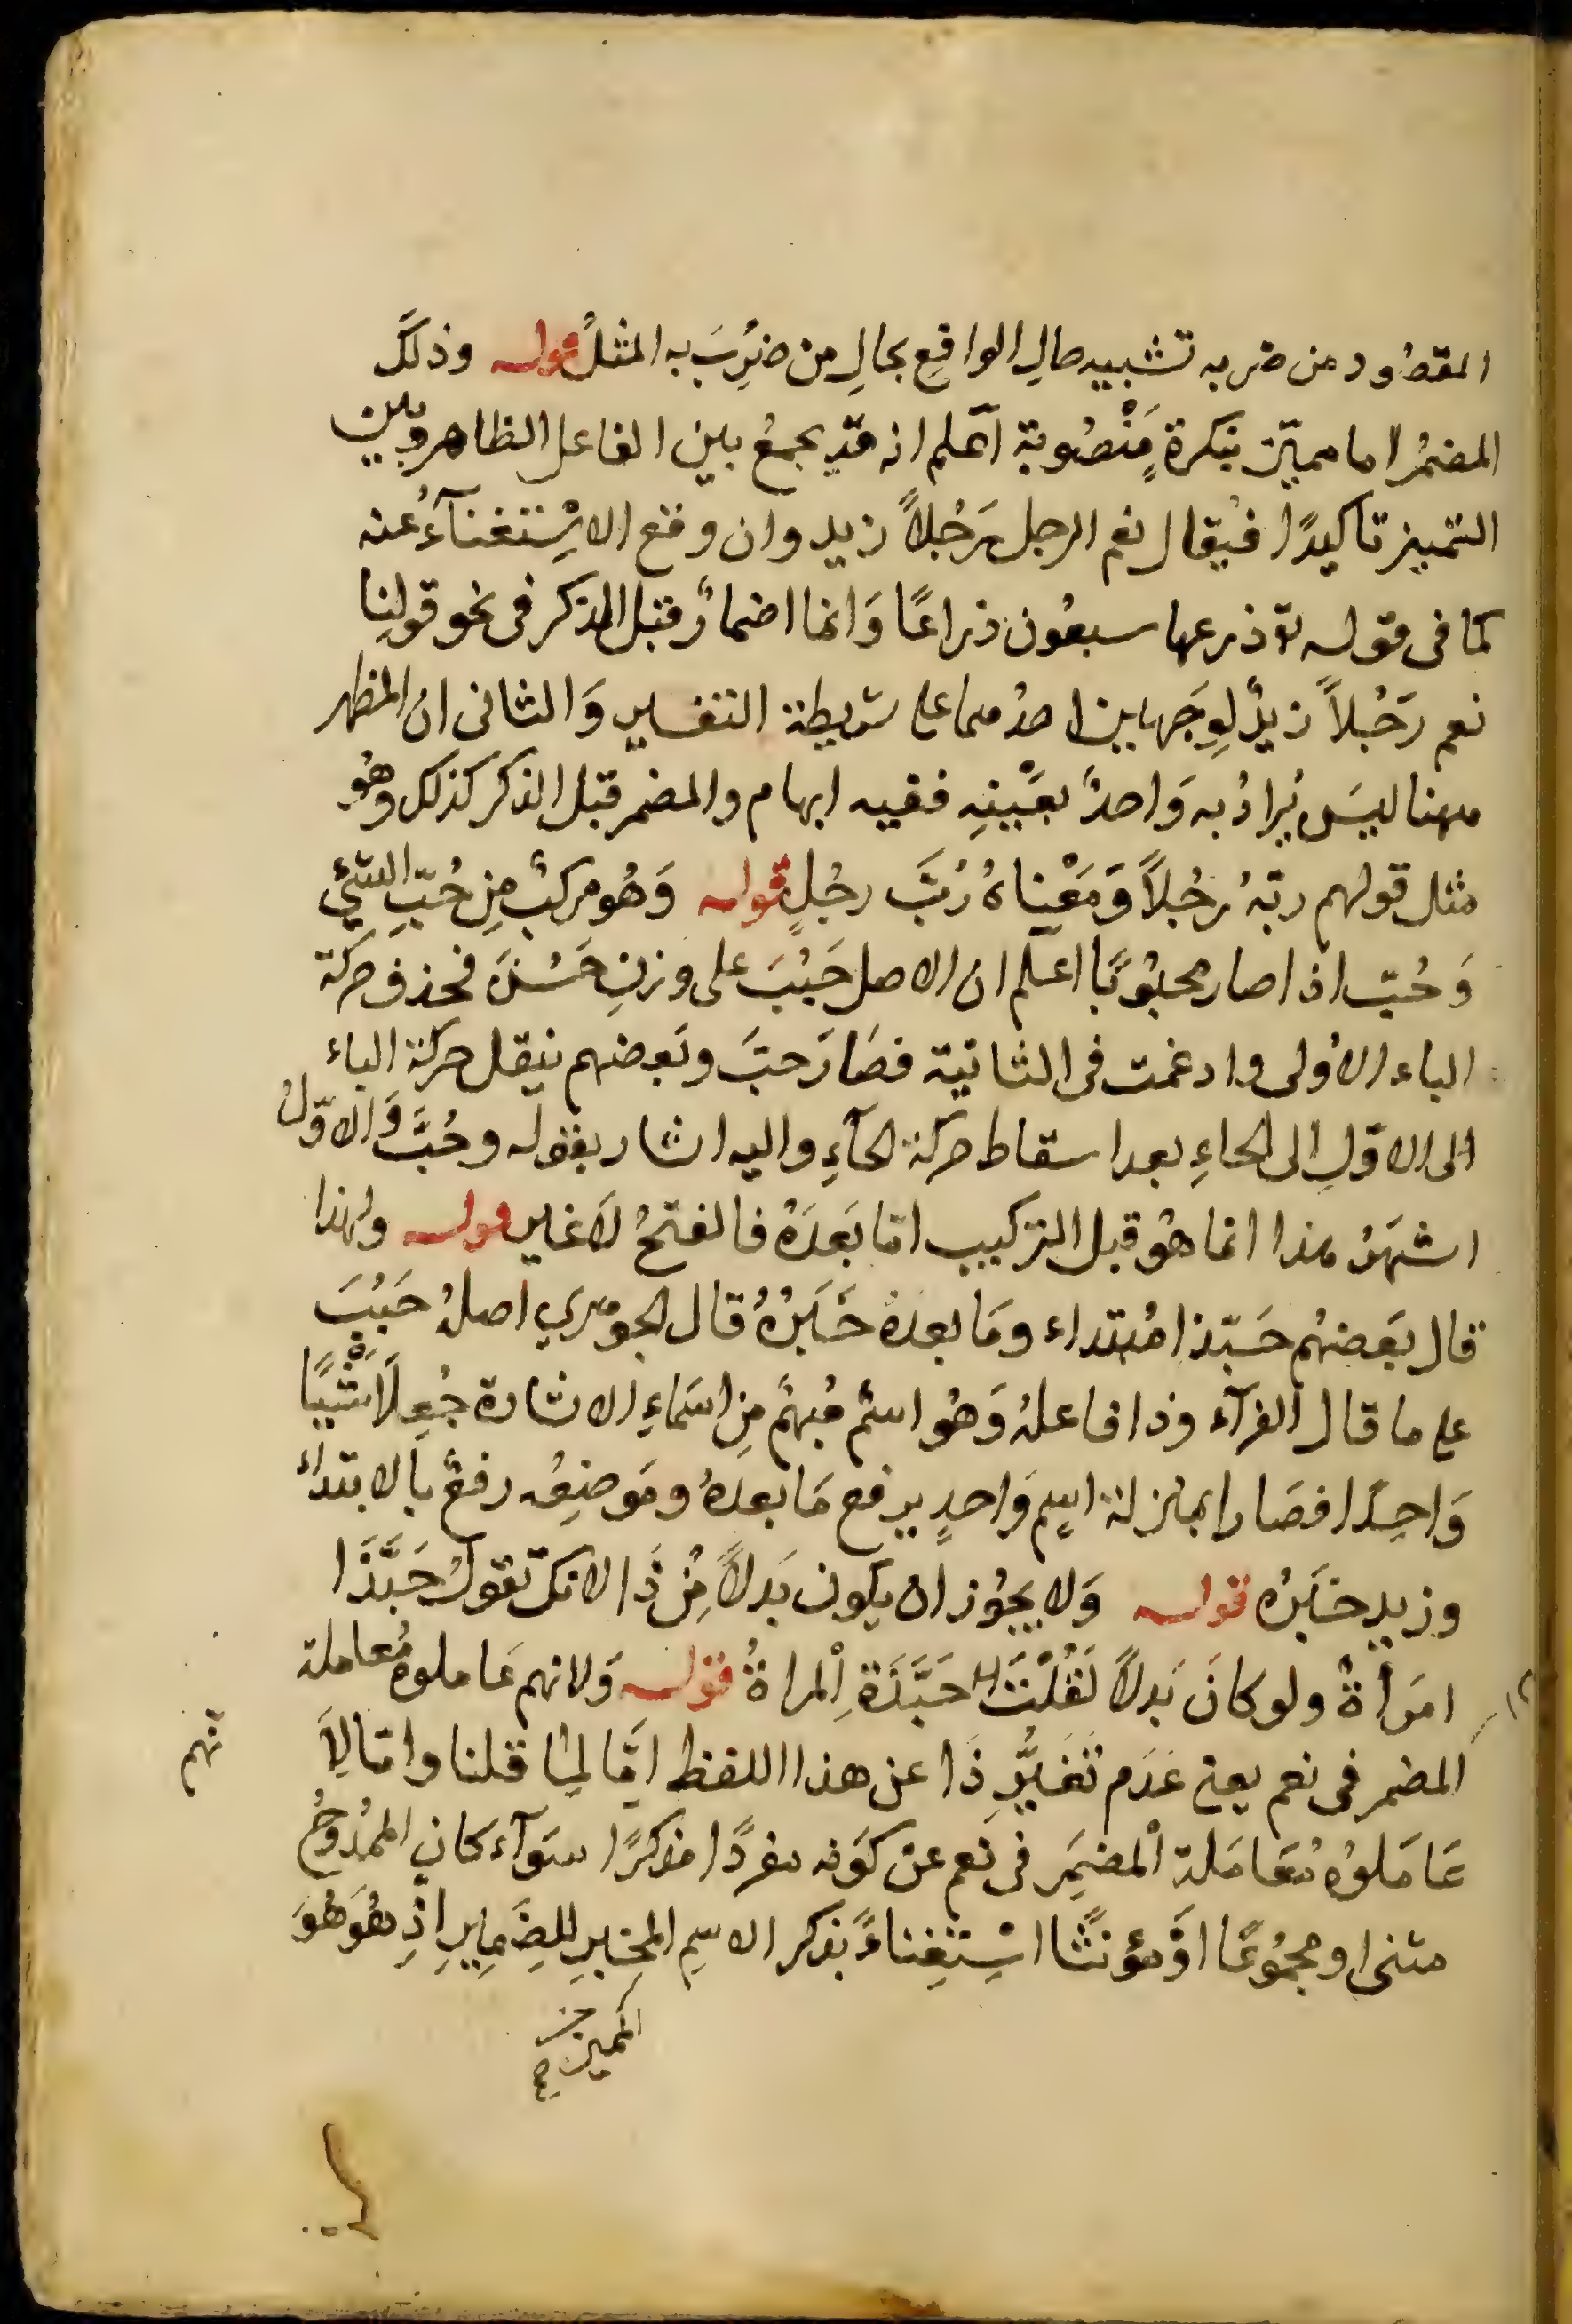 المقصُود من ضربه تشبيه حالِ الواقعِ بحالِ من ضُرِبَ به المثلُ قوله وذلكَ
المضمرُ اما مميّز بنكرةٍ مَنْصُوبة اعلم انه قد يجمعُ بين الفاعل الظاهر وبين
التمييز تاكيدًا فيُقال نعم الرجل رَجُلاً زيد وان وقع الاسْتغنآءُ عنه
كما فى قوله تع ذرعها سبعُون ذراعًا وَانما اضمارٌ قبل الذكر فى نحو قولِنا
نعم رَجُلاً زيدٌ لوِجَهيين احدُهما على شريطة التفسير وَالثانى ان المظهر
ههنا ليسَ يُرادُ به وَاحدٌ بعَيْنِهِ ففيه ابهام والمضمر قبل الذكر كذلك وهُو
مثل قولهم ربّهُ رجُلاً وَمَعْناهُ رُبَّ رجُلٍ قوله وَهُو مركبٌ مِن حُبّ الشئِي
وَحُبّ اذا صار محبُوبًا اعلم ان الاصل حَبُبَ على وزنِ حَسُنَ فحذف حركة
الباء الاولى وادغمت فى الثانية فصَارَ حبَّ وبَعضهم ينقل حركة الباء
الى الاوّلِ الى الحاءِ بعد اسقاط حركة الحآءِ واليه اشار بقوله وحُبَّ وَالاوّلُ
اشهَرُ هذا انما هُو قبل التركيب امّا بَعدَهُ فالفتحُ لاغير قوله ولهذا
قال بَعضهُم حَبّذا مُبتداء ومَا بعدهُ خَبَرُهُ قال الجوهري اصلُهُ حَبُبَ
على ما قال الفرآء وذا فاعلهُ وَهُو اسمٌ مُبهمٌ مِن اسَماءِ الاشارة جُعِلَا شَيْئًا
وَاحِدًا فصَارا بمنزلة اسمٍ وَاحدٍ يرفع مَا بعدهُ ومَوضِعُه رفعٌ بالابتداء
وزيد خبَرُه قوله وَلا يجُوز ان يكون بَدلاً مِنْ ذَا لانك تقولُ حَبَّذَا
امَرأةٌ ولو كانَ بَدلاً لَقُلْتَ حَبَّذَةِ اْلمراةُ قوله وَلانهم عَاملوهُ مُعاملة
المضمر فى نعم يعنى عَدَم تغَيُّرِ ذَا عن هذا اللفظ امَّا لمِا قلنا وامّا لِاَ
نهم
عَامَلوُهُ مُعَامَلة اْلمضمَرِ فى نَعم عن كوَنه مفردًا مذكرًا سَوآء كان الممدُوحُ
مثنى او مجمُوعًا اوَ مؤنثًا اسْتِغِناءً بذكر الاسمِ المخبرِ للضَمايِرِ اذِ هُوَ هُوَ
المميز خ